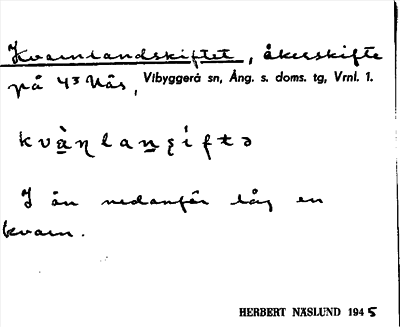 Kvarnlandskiftet, åkerskifte
på 4³ Nås, Vibyggerå sn, Ång. s. doms. tg, Vrnl. 1.
kvànlanʂíftə
I ån nedanför låg en
kvarn.
HERBERT NÄSLUND 1945